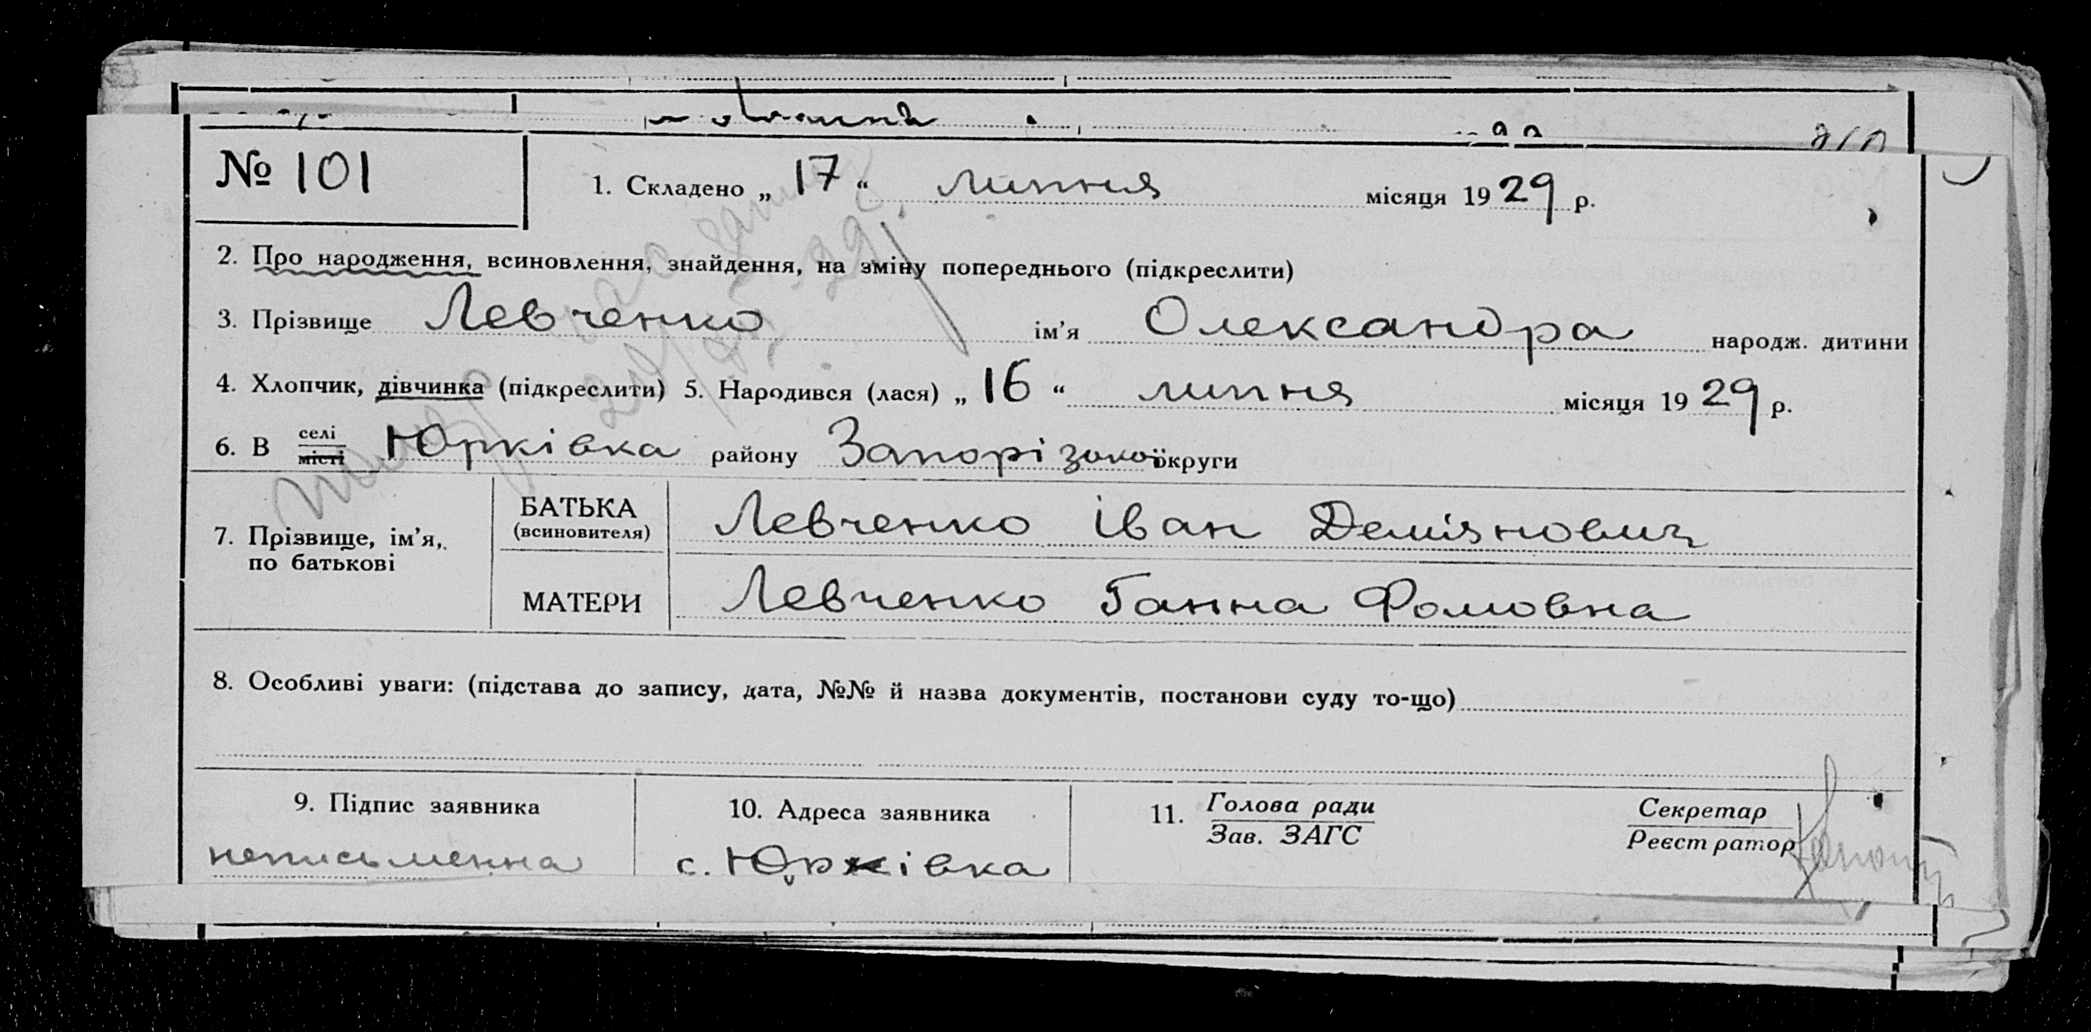 № 101
1. Складено „ 17 “ липня місяця 1929 р.
2. Про народження, всиновлення, знайдення, на зміну попереднього (підкреслити)
3. Прізвище Левченко ім’я Олександра народж. дитини
4. Хлопчик, дівчинка (підкреслити) 5. Народився (лася) „ 16 “ липня місяця 1929 р.
6. В селі місті Юрківка району Запорізької округи
7. Прізвище, ім’я, по батькові
БАТЬКА (всиновителя) Левченко Іван Демʼянович
МАТЕРИ Левченко Ганна Фомовна
8. Особливі уваги: (підстава до запису, дата, №№ й назва документів, постанови суду то-що)
9. Підпис заявника
неписьменна
10. Адреса заявника
с. Юрківка
11. Голова ради
Зав. ЗАГС
Секретар
Реєстратор